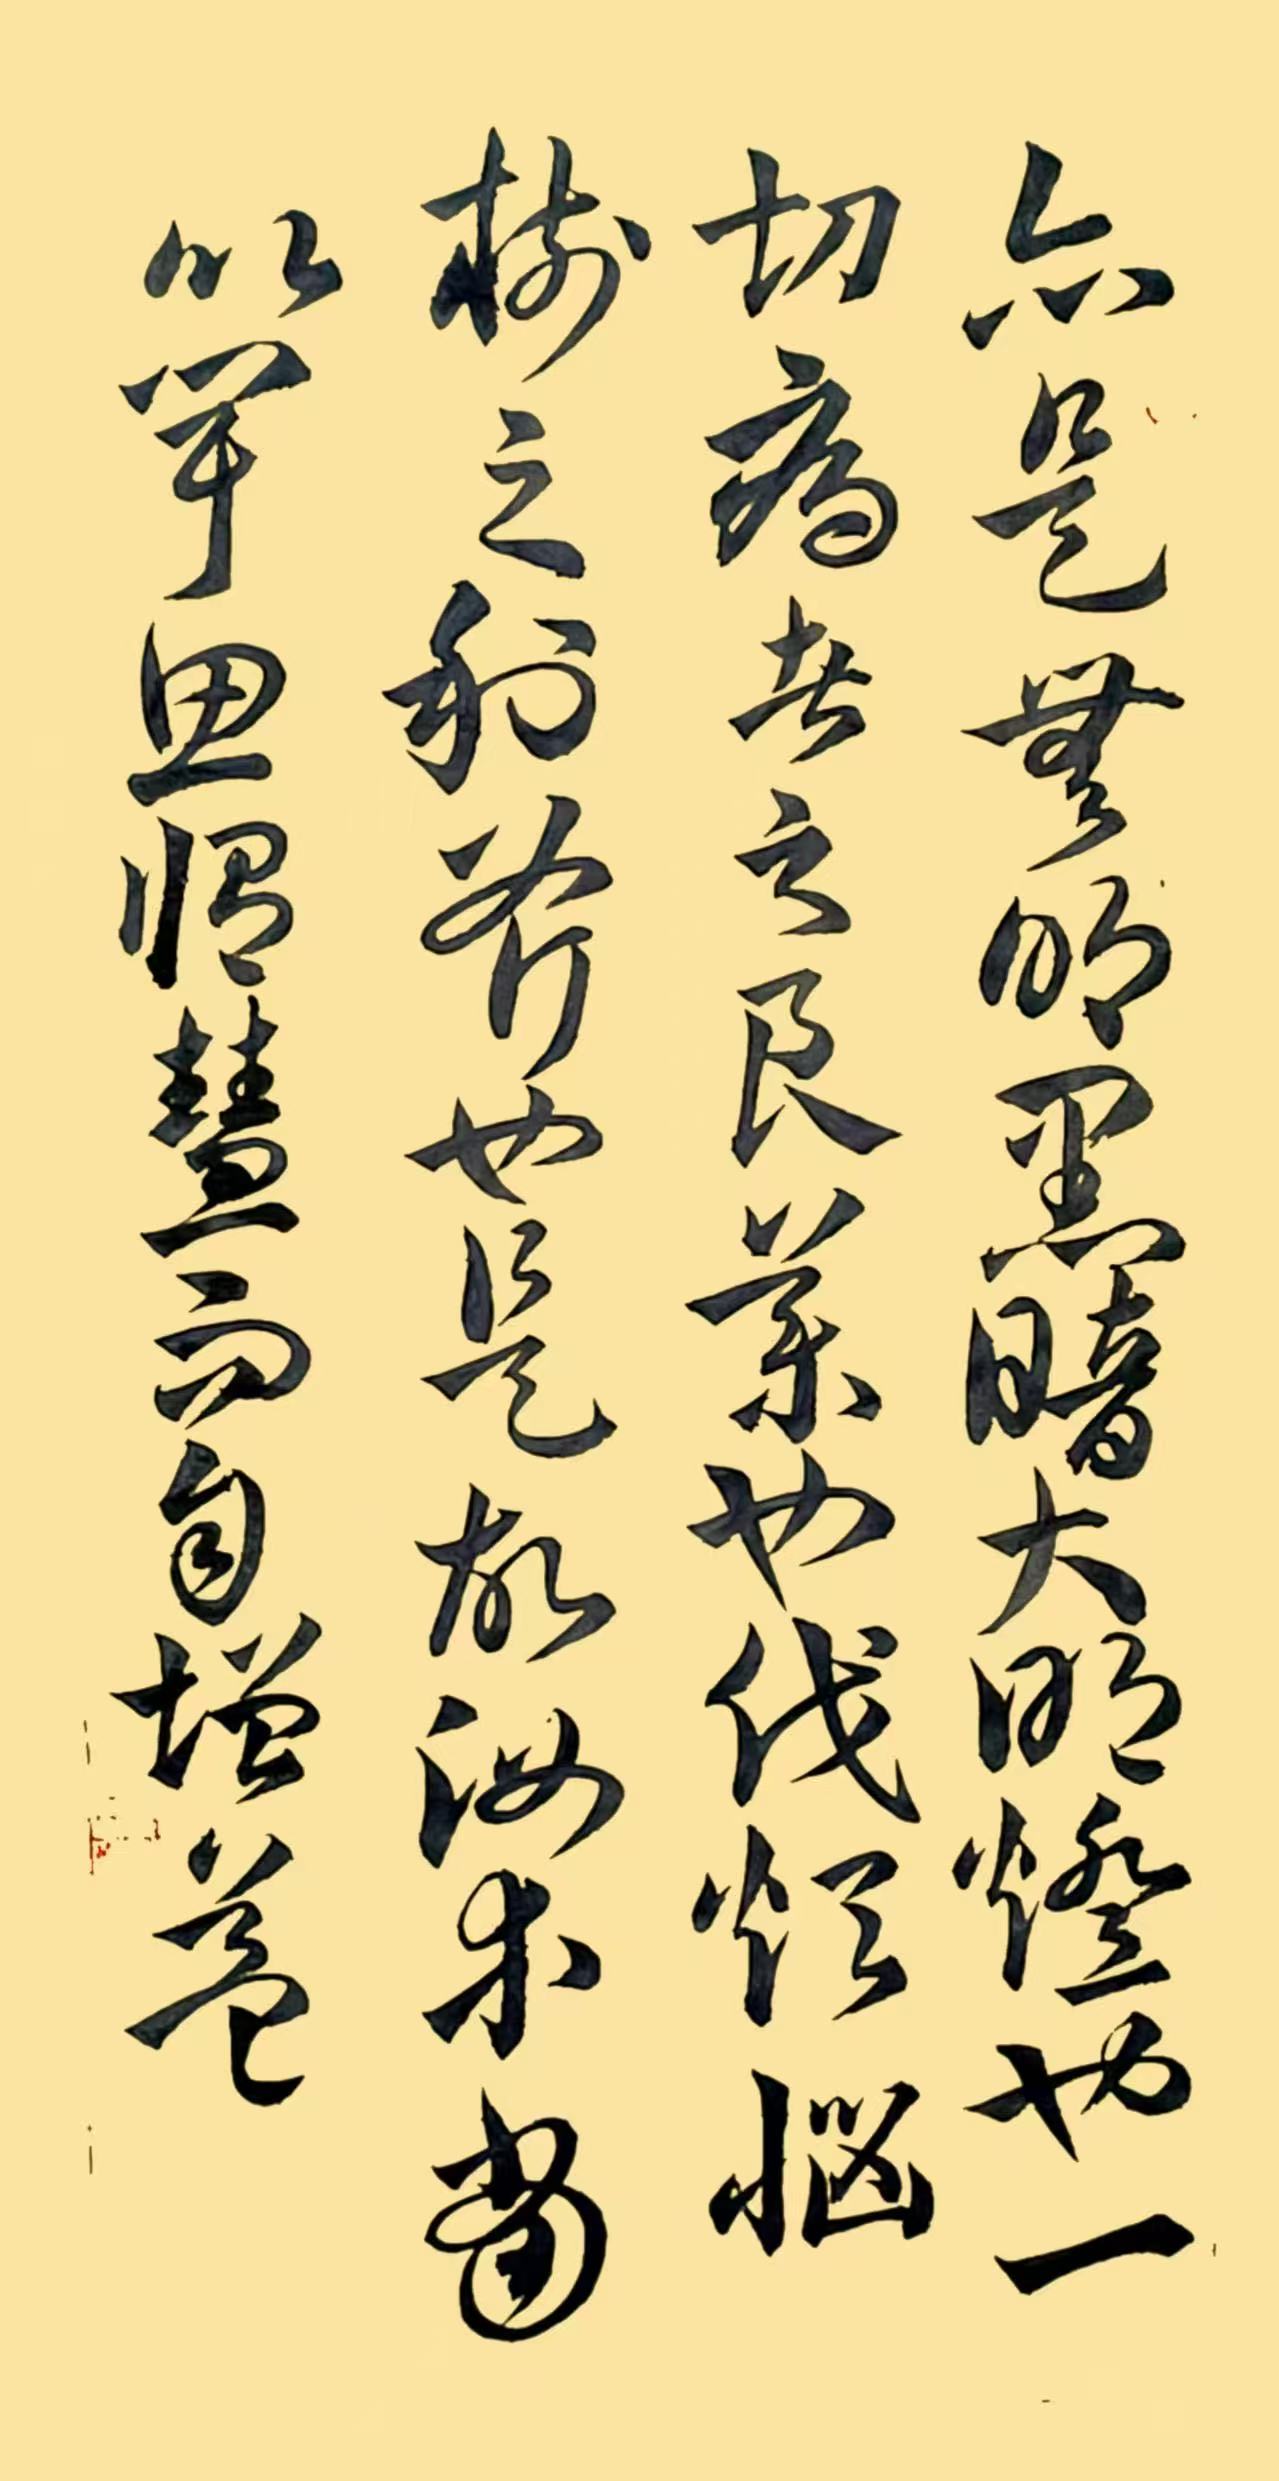 亦是無明黑暗大明燈也一
切病者之良藥也伐煩惱
樹之利斧也是故汝等當
以聞思脩慧而自增益